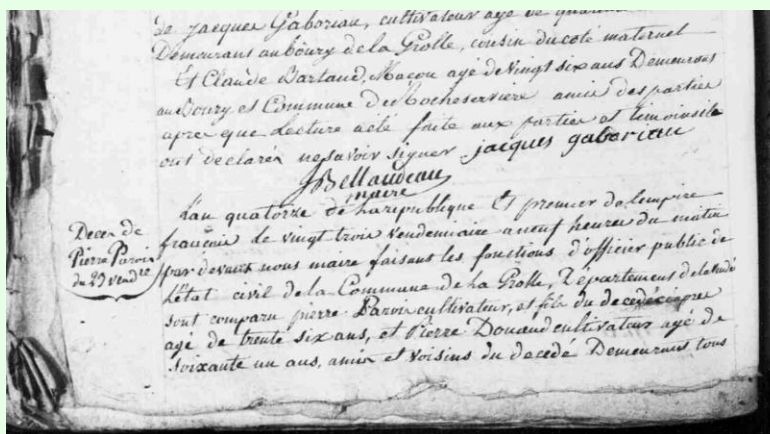 de jacques Gaboriau, cultivateur agé de
Demourans au bourg de la Grolle, cousin du coté maternel
Et Claude Bartaud, Maçon agé de vingt six ans Demeurans
au Bourg et Commune de Rocheserviere amis des partie
apre que Lecture a été faite aux partie et temoins ils
ont declarée ne savoir signer jacques gaboriau
JBellaudeau
maire
L'an quatorze de la republique Et premier de lempire
françois le vingt trois vendemiaire a neuf heures du matin
Deces de
Pierre Parois
du 23 vendre
par devant nous maire faisant les fonctions d'officier public de
L'Etat civil de la Commune de la Grolle, Département de la
sont comparu pierre Parois cultivateur, et fils du decedé
agé de trente six ans, et Pierre Douaud cultivateur agé de
soixante un ans, amis et voisins du decedé Demeurans tous